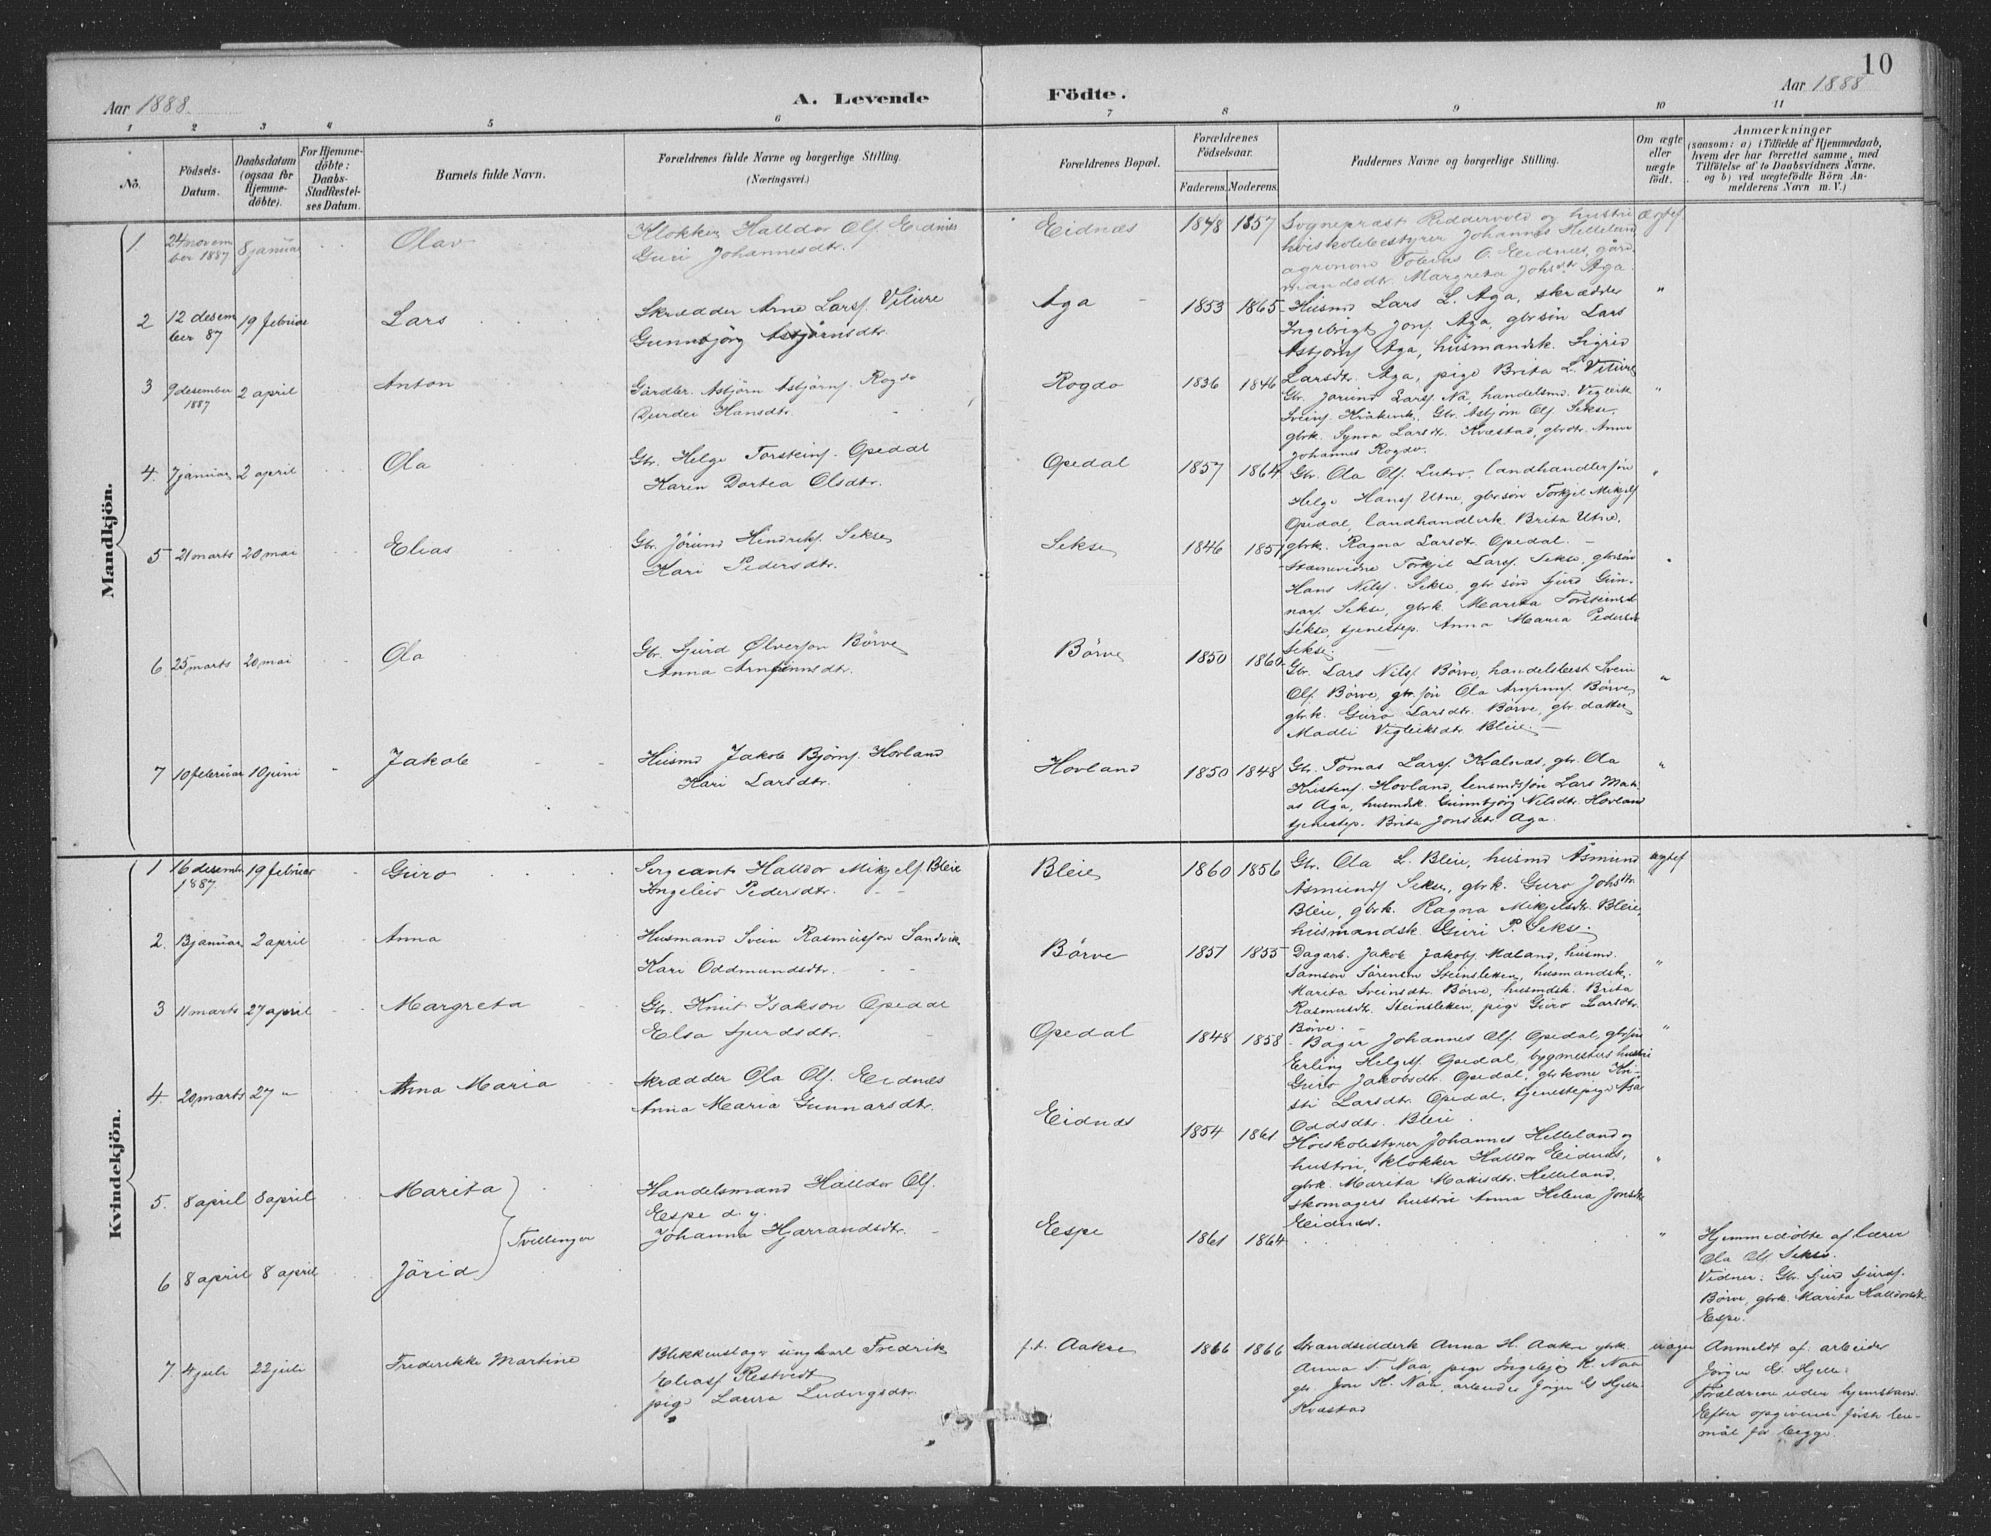 10
Aar 1888. A. Levende Födte. Aar 1888
1 2 3 4 5 6 7 8 9 10 11
No. Födsels-Datum. Daabsdatum (ogsaa for Hjemme-döbte). For Hjemme-döbte: Daabs-Stadfæstel-ses Datum. Barnets fulde Navn. Forældrenes fulde Navne og borgerlige Stilling. (Næringsvei.) Forældrenes Bopæl. Forældrenes Födselsaar. Faderens. Moderens. Faddernes Navne og borgerlige Stilling. Om ægte eller uægte födt. Anmærkninger (saasom: a) i Tilfælde af Hjemmedaab, hvem der har forrettet samme, med Tilföielse af to Daabsvidners Navne. og b) ved uægtefödte Börn An-melderens Navn m. V.)
Mandkjön.
1 24 novem ber 1887 8 januar Olav
Klokker Halldor Olf. Eidnes
Guri Johannesdtr.
Eidnæs 1848 1857
Sognepræst Riddervold og hustri
höiskolebestyrer Johannes Helleland
agronom O. Eidnes, gård
mandsdtr. Margreta Johsdtr. Aga.
ægtef
2 12 desem ber 87 19 februar Lars
Skrædder Arne Larsf. Vilure
Gunnbjörg Asbjörnsdtr.
Aga 1853 1865
Husmd Lars L. Aga, skrædder
Ingebrigt Jonf. Aga, gbrsön Lars
Asbjörnf Aga, husmandsk. Sigrid
Larsdtr. Aga, pige Brita L. Vilure
"
3 9 desember 1887 2 april Anton
Gårdbr. Asbjörn Asbjörnf. Rogdo
Durdei Hansdtr.
Rogdo 1836 1846
Gbr. Jorund Larsf. Nå, handelsmd. Vigleik
Sveinf. Kråkevik, Gbr. Asbjörn Olf Sekse,
gbrk. Synva Larsdtr. Kvæstad, gbrdtr. Anna
Johannes Rogdo.
"
4. 7 januar 2 april Ola
Gbr. Helge Torsteinf. Opedal
Karen Dortea Olsdtr.
Opedal 1857 1864
Gbr. Ola Olf. Lutro, landhandlersön
Helge Hansf Utne, gbrsön Torkjel Mikjelf
Opedal, landhandlerk Brita Utne,
gbrk. Ragna Larsdtr Opedal. -
"
5 21 marts 20 mai Elias
Gbr. Jörund Hendrikf. Sekse
Kari Pedersdtr.
Sekse 1846 1851
Stævnevidne Torkjel Larsf. Sekse, gbrsön
Hans Nilsf. Sekse, gbrsön Sjurd Gun-
narf. Sekse, gbrk. Marita Torsteinsdtr
Sekse, tjenestep. Anna Maria Pedersdtr
Sekse. -
"
6 25 marts 20 mai Ola
Gbr. Sjurd Ølverson Börve
Anna Arnfinnsdtr.
Börve 1850 1860
Gbr. Lars Nilsf Börve, handelsbest Svein
Olf. Börve, gbrsön Ola Arnfinnf. Börve,
gbrk. Guro Larsdtr. Börve, gbr datter
Madli Vigleiksdtr Bleie. -
"
7 10 februar 10 juni Jakob
Husmd Jakob Bjönf. Hovland
Kari Larsdtr.
Hovland 1850 1848
Gbr. Tomas Larsf Kvalnæs, gbr. Ola
Kristenf. Hovland, lensmdsön Lars Mat
as Aga, husmdsk. Gunnbjörg Nilsdtr. Hovland
tjenestep. Brita Jonsdtr Aga.
"
Kvindekjön.
1 16 desemb 1887 19 februar Guro
Sergeant Halldor Mikjelf Bleie
Ingeleiv Pedersdtr.
Bleie 1860 1856
Gbr. Ola L. Bleie, husmd Åsmund
Åsmundf Sekse, gbrk. Guro Johsdtr
Bleie, gbrk. Ragna Mikjelsdtr. Bleie,
husmandsk Guri P. Sekse.
ægtef
2. 13 januar 2 april Anna
Husmand Svein Rasmusson Sandvik
Kari Oddmundsdtr.
Börve 1851 1855
Dagarb. Jakob Jakobf. Maland, husmd.
Samson Sörensen Steinsleken, husmandsk.
Marita Sveinsdtr Börve, husmdsk. Brita
Rasmusdtr. Steinsleken, pige Guro Larsdtr
Börve. -
"
3 11 marts 27 april Margreta
Gbr. Knut Isakson Opedal
Elsa Sjurdsdtr.
Opedal 1848 1858
Bager Johannes Olf. Opedal, gbrsön
Erling Helgef Opedal, bygmesters hustri
Guro Jakobsdtr. Opedal, gbrkone Kri-
sti Larsdtr. Opedal, tjenestepige Åsa
Oddsdtr. Bleie.
"
4. 20 marts 27 " Anna Maria
Skrædder Ola Olf. Eidnæs
Anna Maria Gunnarsdtr.
Eidnæs 1854 1861
Höiskolestyrer Johannes Helleland og
hustru, klokker Halldor Eidnæs,
gbrk. Marita Matisdtr. Helleland,
skomagers hustru Anna Helena Jonsdtr
Eidnæs.
"
5. 8 april 8 april Marita
6 8 april 8 april Jörid
Tvillinger
Handelsmand Halldor Olf.
Espe d. y.
Johanna Hjarrandsdtr.
Espe 1861 1864
"
Hjemmedöbte af lærer
Ola Olf Sekse.
Vidner: Gbr. Sjurd Sjurdf.
Börve, gbrk. Marita Halldorsdtr
Espe.
7. 4 juli 22 juli Frederikke Martine
Blikkenslager ungkarl Fredrik
Eliasf Restvedt
pige Laura Ludvigsdtr.
f. t. Aakre 1866 1866
Strandsidderk Anna H. Aakre gbrk.
Anna T. Naa, pige Ingebj K. Naa
gbr. Jon K. Naa, arbeider Jörgen G Hjelle
Kvæstad
uægte
Anmeldt af arbeider
Jörgen G. Hjelle.
Forældrene uden hjemstavn.
Efter opgivende förste lei-
mål for begge.